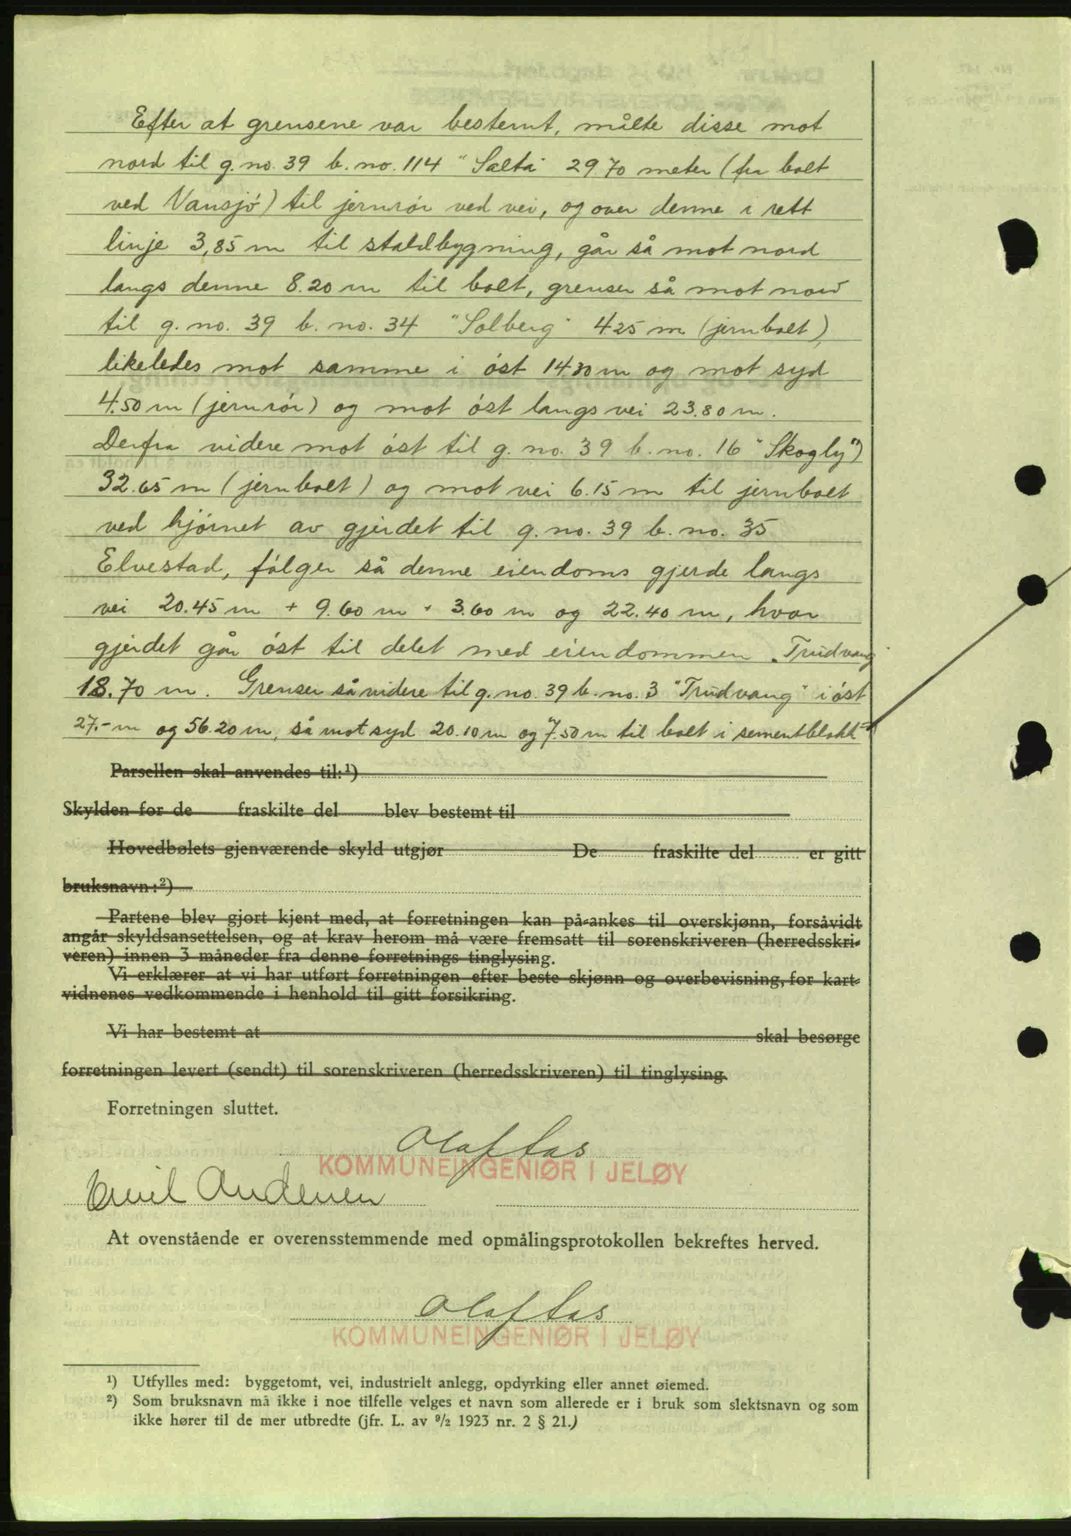 Efter at grensene var bestemt, målte disse mot
nord til g.no. 39 b.no. 114 "Salta" 29.70 meter (fra bolt
ved Vansjø) til jernrør ved vei, og over denne i rett
linje 3,85 m til staldbygning, går så mot nord
langs denne 8.20 m til bolt, grenser så mot nord
til g.no. 39 b.no. 34 "Solberg" 4.25 m (jernbolt),
likeledes mot samme i øst 14.30 m og mot syd
4.50 m (jernrør) og mot øst langs vei 23.80 m.
Derfra videre mot øst til g.no. 39 b.no. 16 "Skogly")
32.65 m (jernbolt) og mot vei 6.15 m til jernbolt
ved hjørnet av gjerdet til g.no. 39 b.no. 35
Elvestad, følger så denne eiendoms gjerde langs
vei 20.45 m + 9.60 m + 3.60 m og 22.40 m, hvor
gjerdet går øst til delet med eiendommen „Trudvang"
18.70 m. Grenser så videre til g.no. 39 b.no. 3 "Trudvang" i øst
27.- m og 56.20 m, så mot syd 20.10 m og 7.50 m til bolt i sementblokk
Parsellen skal anvendes til:¹)
Skylden for de fraskilte del blev bestemt til
Hovedbølets gjenværende skyld utgjør De fraskilte del er gitt
bruksnavn:²)
Partene blev gjort kjent med, at forretningen kan på-ankes til overskjønn, forsåvidt
angår skyldsansettelsen, og at krav herom må være fremsatt til sorenskriveren (herredsskri-
veren) innen 3 måneder fra denne forretnings tinglysing.
Vi erklærer at vi har utført forretningen efter beste skjønn og overbevisning, for kart-
vidnenes vedkommende i henhold til gitt forsikring.
Vi har bestemt at skal besørge
forretningen levert (sendt) til sorenskriveren (herredsskriveren) til tinglysing.
Forretningen sluttet.
Olaf Aas
KOMMUNEINGENIØR I JELØY
Emil Andersen
At ovenstående er overensstemmende med opmålingsprotokollen bekreftes herved.
Olaf Aas
KOMMUNEINGENIØR I JELØY
¹) Utfylles med: byggetomt, vei, industrielt anlegg, opdyrking eller annet øiemed.
²) Som bruksnavn må ikke i noe tilfelle velges et navn som allerede er i bruk som slektsnavn og som
ikke hører til de mer utbredte (jfr. L. av ⁹/₂ 1923 nr. 2 § 21.)